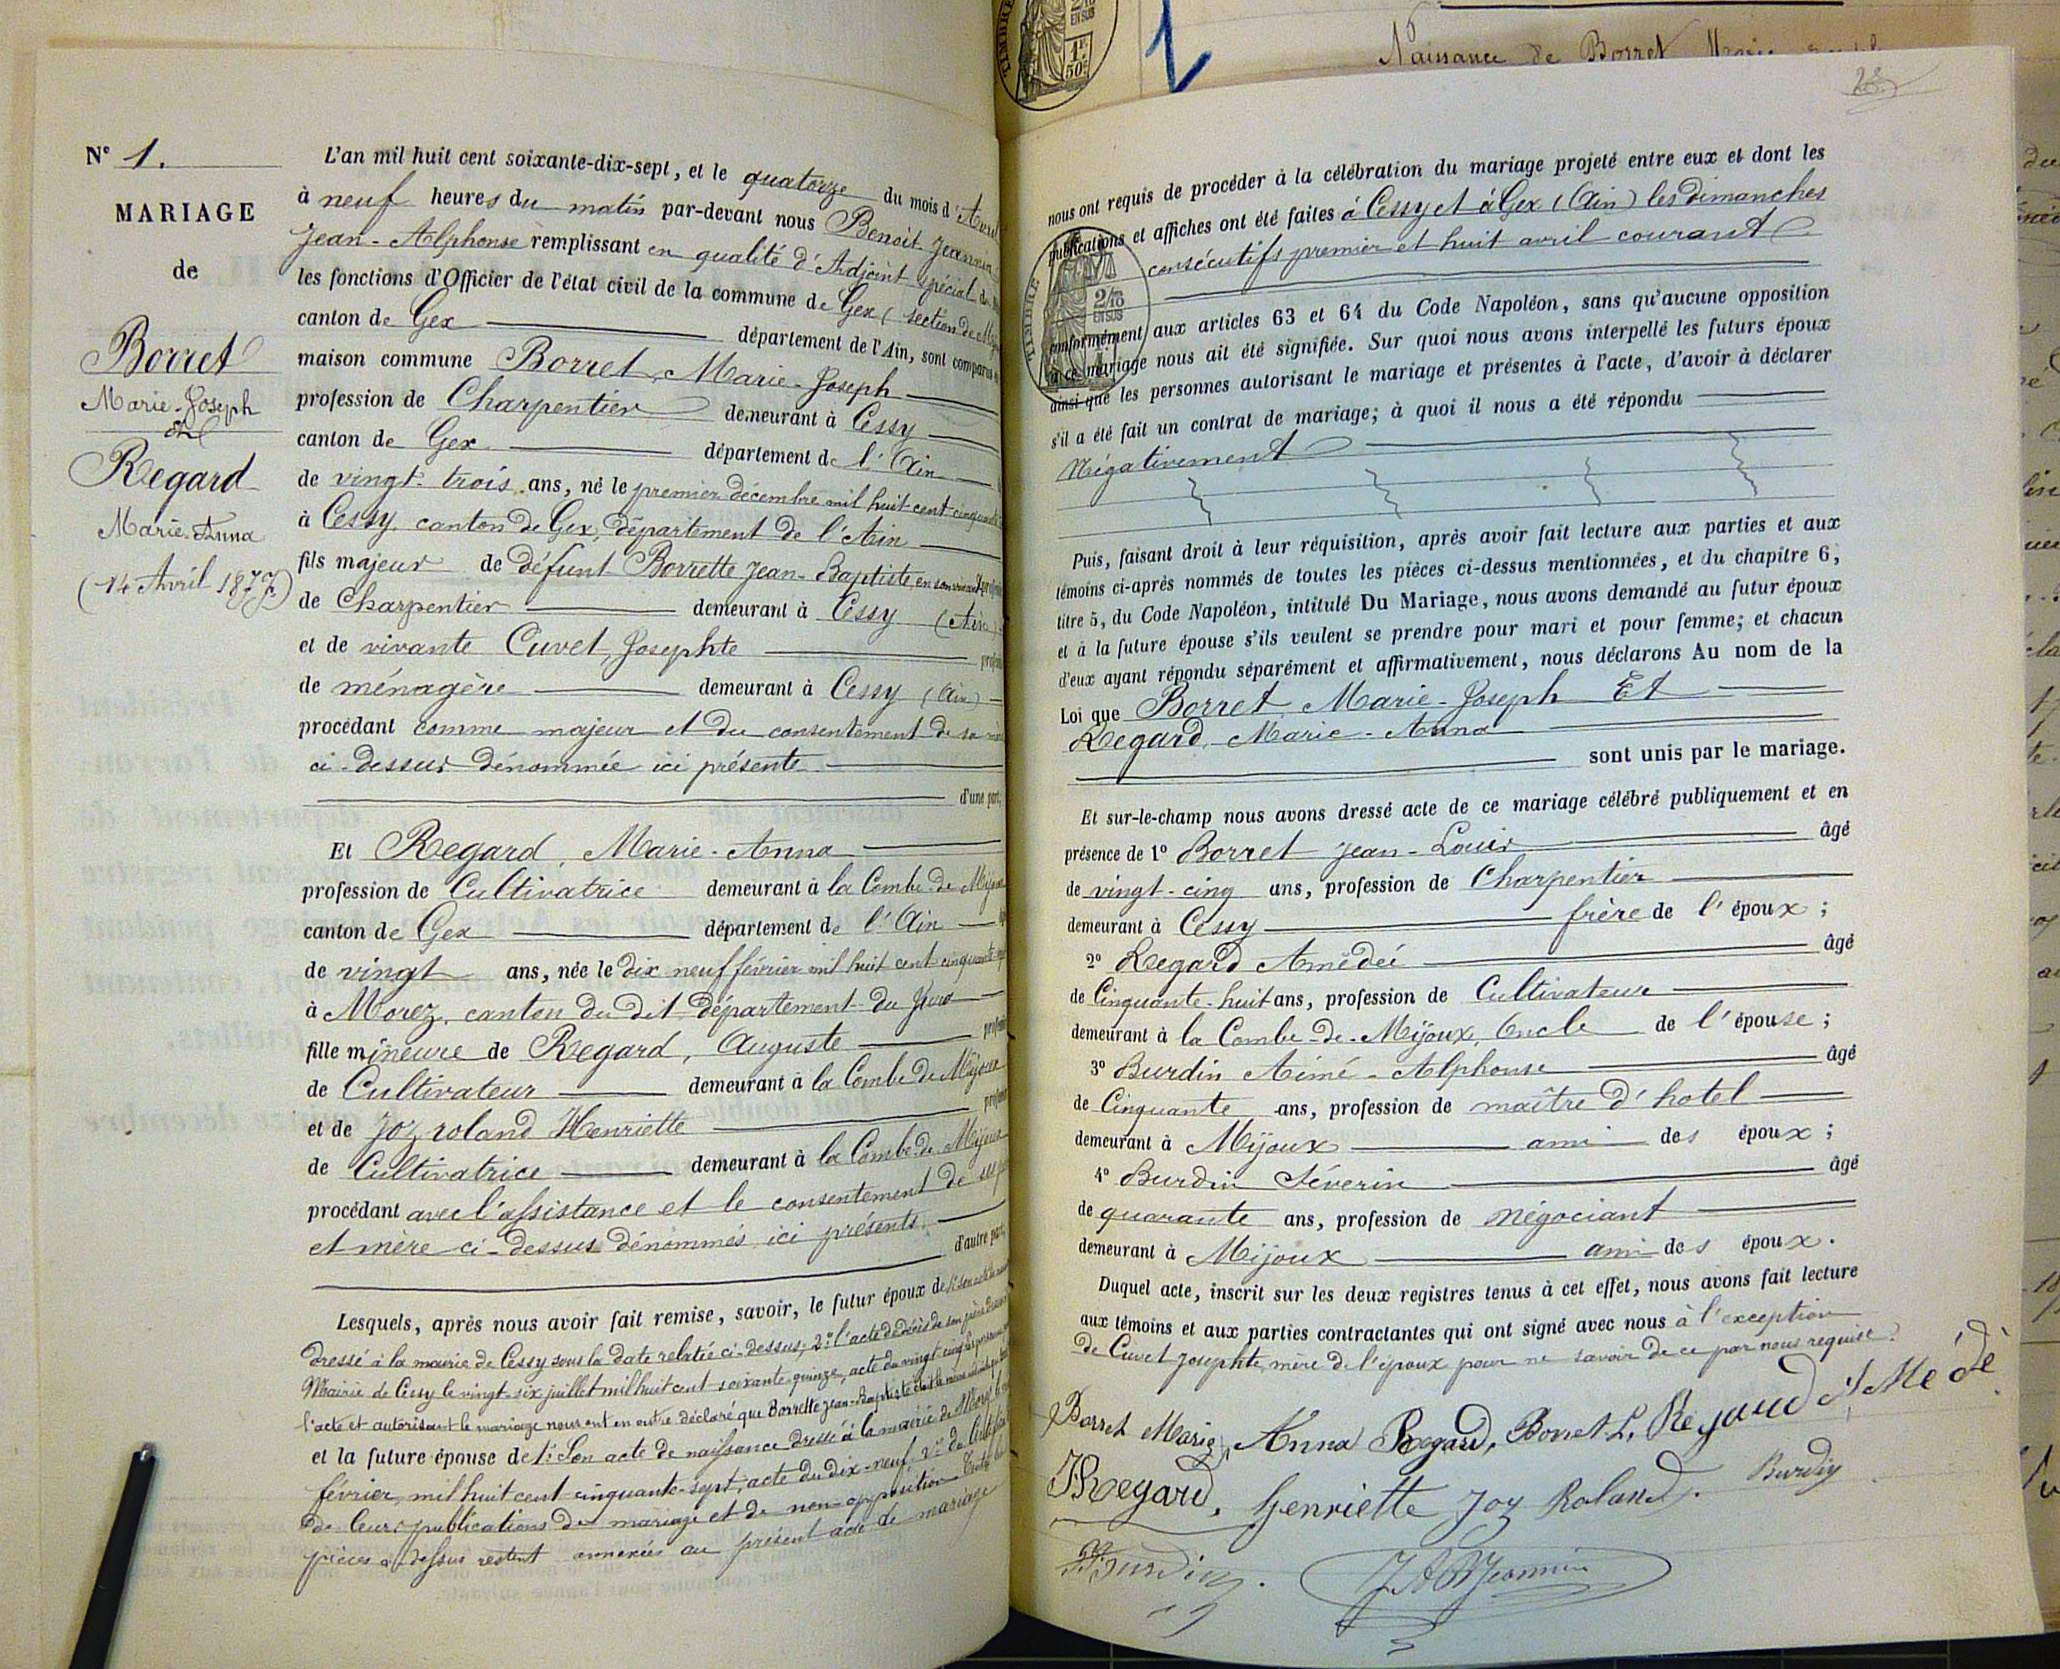 N° 1.
MARIAGE
de
Borret
Marie-Joseph
et
Regard
Marie-Anna
(14 Avril 1877)
L'an mil huit cent soixante-dix-sept, et le quatorze du mois d'Avril
à neuf heures du matin par-devant nous Benoit-Jeannin
Jean-Alphonse remplissant en qualité d'Adjoint spécial
les fonctions d'Officier de l'état civil de la commune de Gex (section de
canton de Gex département de l'Ain, sont comparus
maison commune Borret, Marie-Joseph
profession de Charpentier demeurant à Cessy
canton de Gex département de l'Ain
de vingt-trois ans, né le premier décembre mil huit cent cinquante
à Cessy, canton de Gex, département de l'Ain
fils majeur de défunt Borrette Jean-Baptiste, en son vivant
de Charpentier demeurant à Cessy (Ain)
et de vivante Cuvet, Josephte
de ménagère demeurant à Cessy (Ain)
procédant comme majeur et du consentement de sa
ci-dessus dénommée ici présente
d'une part,
Et Regard, Marie-Anna
profession de Cultivatrice demeurant à la Combe-de-Mijoux
canton de Gex département de l'Ain
de vingt ans, née le dix neuf février mil huit cent cinquante
à Morez, canton du dit, département du Jura
fille mineure de Regard, Auguste
de Cultivateur demeurant à la Combe de Mijoux
et de Joz roland Henriette
de Cultivatrice demeurant à la Combe-de-Mijoux
procédant avec l'assistance et le consentement de ses
et mère ci-dessus dénommés ici présents.
d'autre part,
Lesquels, après nous avoir fait remise, savoir, le futur époux de 1° son acte de
dressé à la mairie de Cessy sous la date relatée ci-dessus, 2° l'acte de décès de son père
Mairie de Cessy le vingt-six juillet mil huit cent soixante-quinze, acte du vingt-cinq
l'acte et autorisant le mariage nous ont en outre déclaré que Borrette Jean-Baptiste était le même
et la future épouse de 1° Son acte de naissance dressé à la mairie de Morez
février mil huit cent cinquante-sept, acte du dix-neuf, 2°
de leurs publications de mariage et de non-opposition
pièces ci-dessus restent annexées au présent acte de mariage
TIMBRE
2/10
EN SUS
1F
50c
Naissance de Borret Marie
nous ont requis de procéder à la célébration du mariage projeté entre eux et dont les
publications et affiches ont été faites à Cessy et à Gex (Ain) les dimanches
consécutifs premier et huit avril courant
TIMBRE
2/10
EN SUS
conformément aux articles 63 et 64 du Code Napoléon, sans qu'aucune opposition
à ce mariage nous ait été signifiée. Sur quoi nous avons interpellé les futurs époux
ainsi que les personnes autorisant le mariage et présentes à l'acte, d'avoir à déclarer
s'il a été fait un contrat de mariage; à quoi il nous a été répondu
Négativement
Puis, faisant droit à leur réquisition, après avoir fait lecture aux parties et aux
témoins ci-après nommés de toutes les pièces ci-dessus mentionnées, et du chapitre 6,
titre 5, du Code Napoléon, intitulé Du Mariage, nous avons demandé au futur époux
et à la future épouse s'ils veulent se prendre pour mari et pour femme; et chacun
d'eux ayant répondu séparément et affirmativement, nous déclarons Au nom de la
Loi que Borret, Marie-Joseph Et
Regard, Marie-Anna
sont unis par le mariage.
Et sur-le-champ nous avons dressé acte de ce mariage célébré publiquement et en
présence de 1° Borret Jean-Louis âgé
de vingt-cinq ans, profession de Charpentier
demeurant à Cessy frère de l'époux;
2° Regard Amédéé âgé
de Cinquante-huit ans, profession de Cultivateur
demeurant à la Combe-de-Mijoux, Oncle de l'épouse;
3° Burdin Aimé-Alphonse âgé
de Cinquante ans, profession de maître d'hotel
demeurant à Mijoux ami des époux;
4° Burdin Séverin âgé
de quarante ans, profession de négociant
demeurant à Mijoux ami des époux.
Duquel acte, inscrit sur les deux registres tenus à cet effet, nous avons fait lecture
aux témoins et aux parties contractantes qui ont signé avec nous à l'exception
de Cuvet Josephte, mère de l'époux pour ne savoir de ce par nous requise.
Borret Marie, Anna Regard, Borret L. Regard AMédé
Regard, Henriette Joz Roland. Burdin
Burdin.
JABJeannin